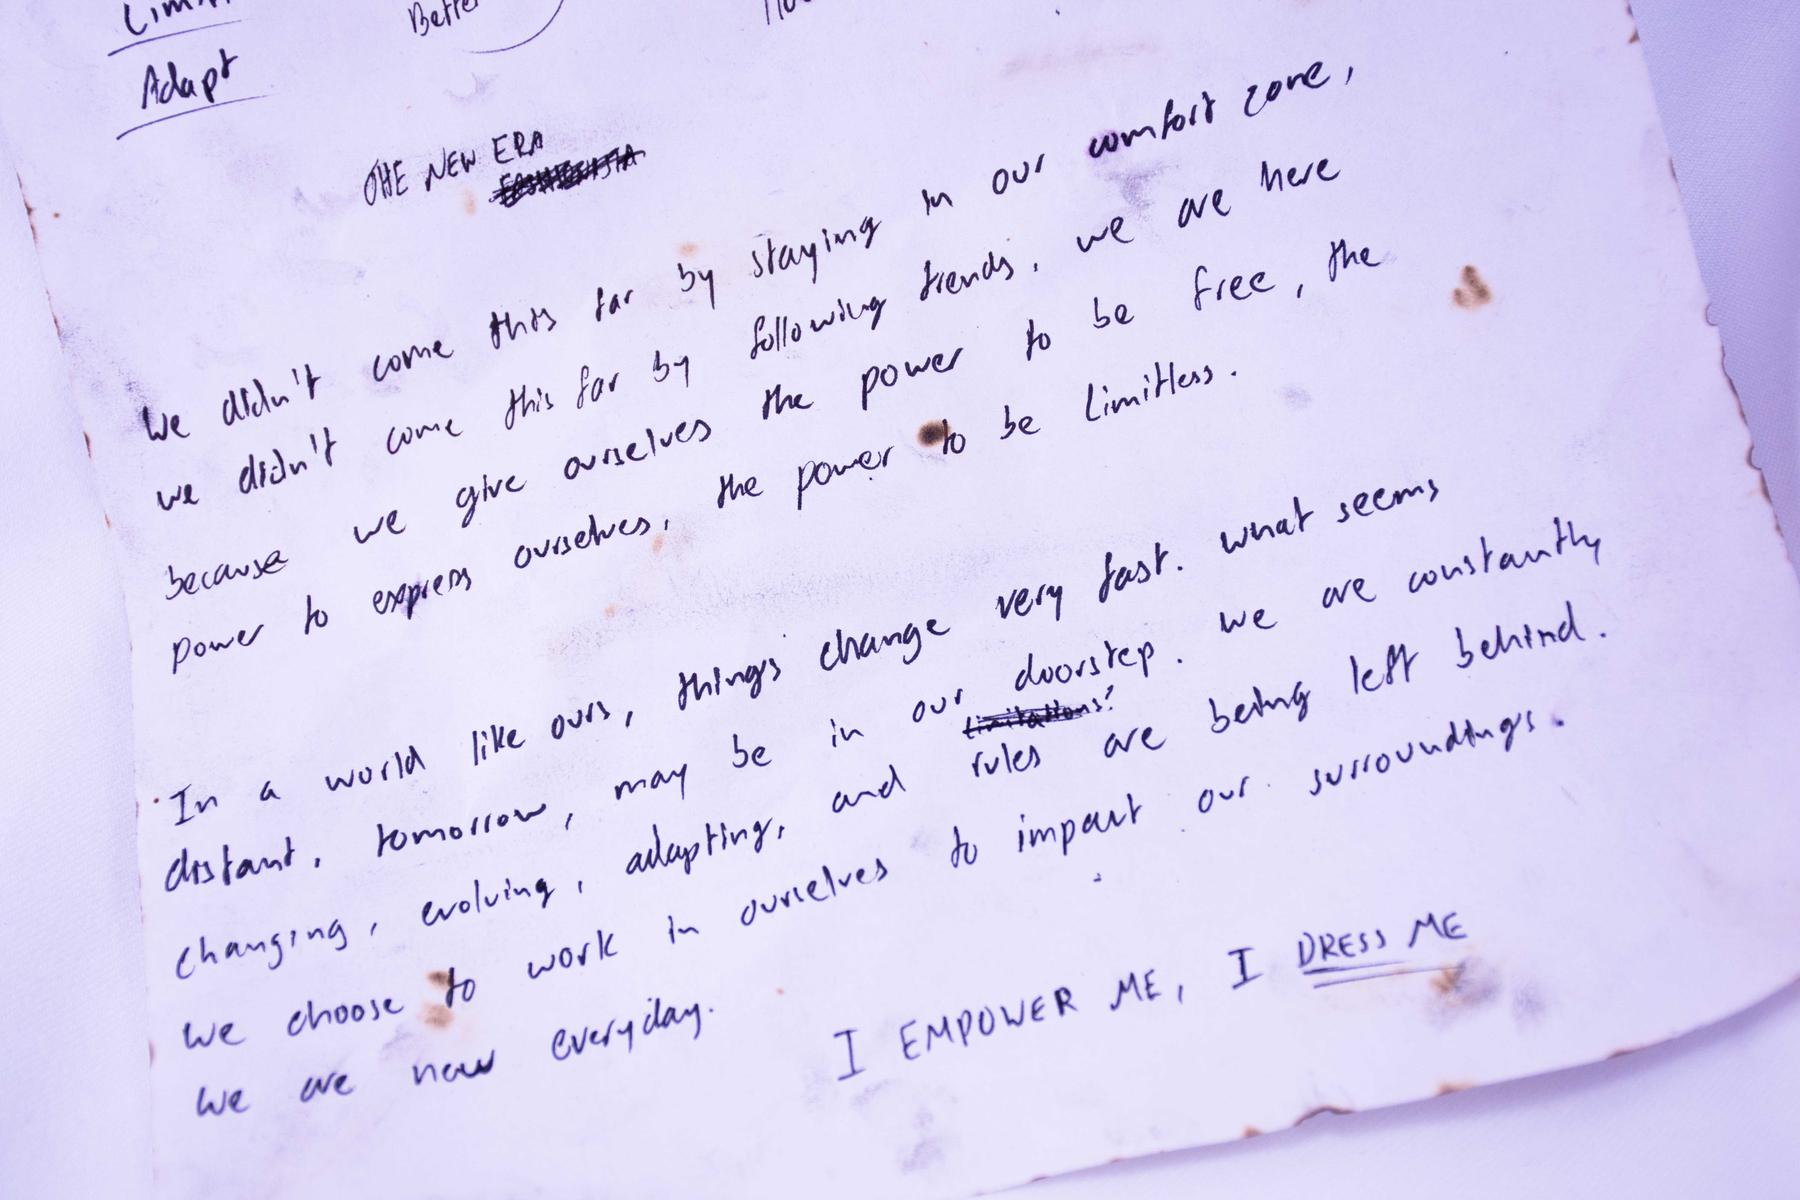 Adapt
THE NEW ERA
We didn't come this far by staying in our comfort zone,
we didn't come this far by following trends, we are here
because we give ourselves the power to be free, the
power to express ourselves, the power to be limitless.
In a world like ours, things change very fast. what seems
distant, tomorrow, may be in our doorstep. we are constantly
limitations!
changing, evolving, adapting, and rules are being left behind.
We choose to work in ourselves to impact our surroundings.
We are new everyday.
I EMPOWER ME, I DRESS ME